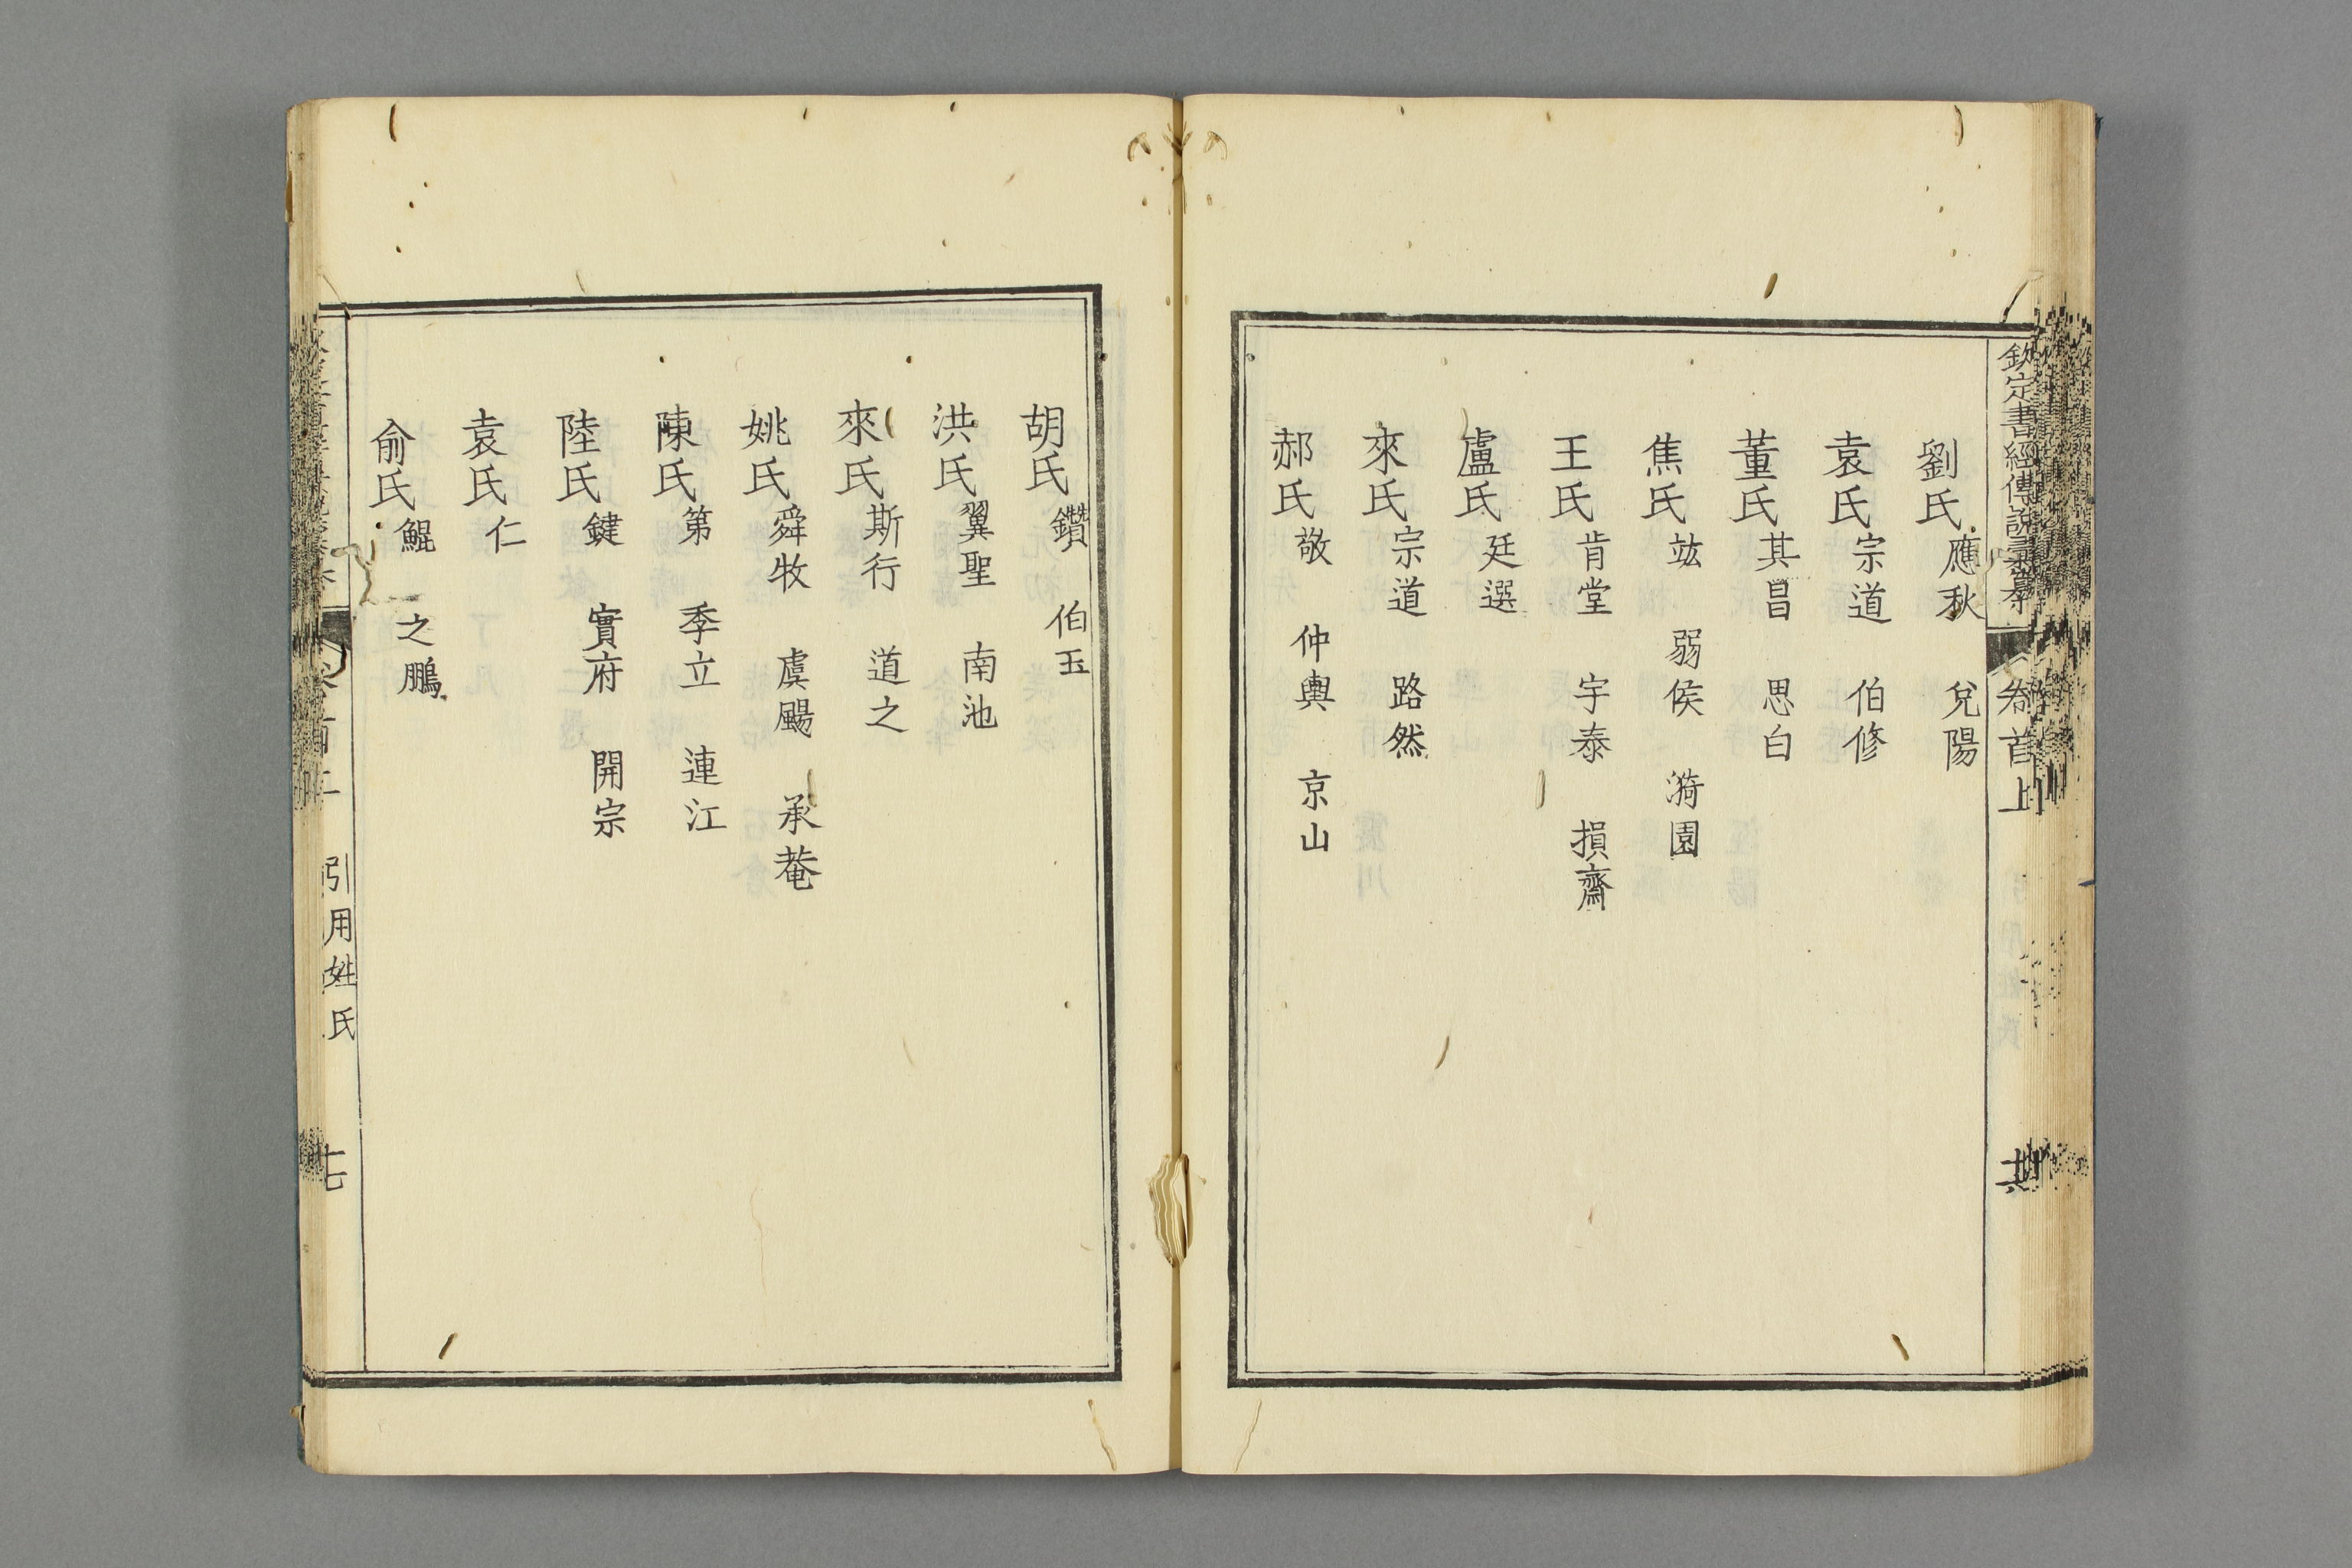 欽定書經傳說彙纂 卷首上 共
劉氏 應秋 兌陽
袁氏 宗道 伯修
董氏 其昌 思白
焦氏 竑 弱侯 漪園
王氏 肯堂 宇泰 損齋
盧氏 廷選
來氏 宗道 路然
郝氏 敬 仲輿 京山
胡氏 鑽 伯玉
洪氏 翼聖 南池
來氏 斯行 道之
姚氏 舜牧 虞颺 承菴
陳氏 第 季立 連江
陸氏 鍵 實府 開宗
袁氏 仁
俞氏 鯤 之鵬
引用姓氏